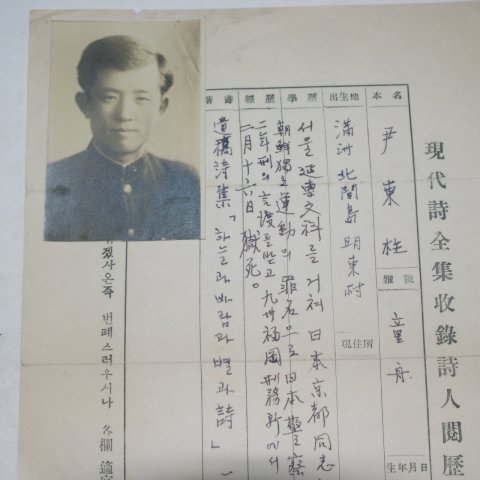 現代詩全集收錄詩人閱歷
本名
尹東柱
雅號
童舟
生年月日
出生地
滿洲 北間島 明東村
現住所
學歷
서울延專文科를 거쳐 日本京都同志
經歷
朝鮮獨立運動의 罪名으로 日本警察
二年刑의 言渡를 받고 九州福岡刑務所에서
二月十六日 獄死。
著書
遺稿詩集「하늘과바람과별과詩」
사온즉 번폐스러우시나 各欄 適宜